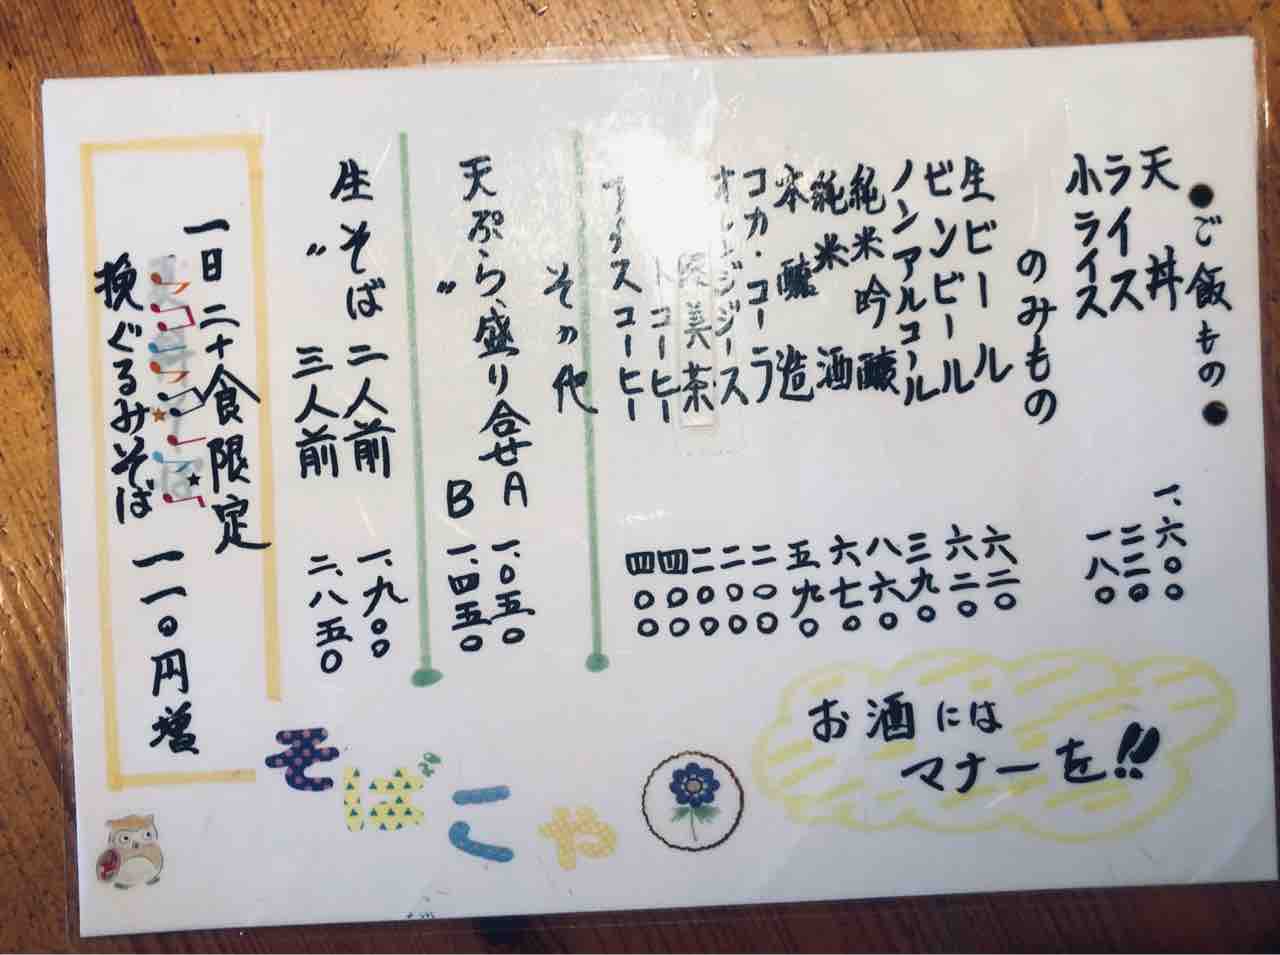 ●ご飯もの●
天丼 一、六〇〇
ライス 三二〇
小ライス 一八〇
のみもの
生ビール 六二〇
ビンビール 六二〇
ノンアルコール 三九〇
純米吟醸 八六〇
純米酒 六七〇
本醸造 五九〇
コカ・コーラ 二〇〇
オレンジジュース 二〇〇
美茶 二〇〇
トコーヒー 四〇〇
アイスコーヒー 四〇〇
その他
天ぷら盛り合せA 一、〇五〇
〃 B 一、四五〇
生そば 二人前 一、九〇〇
〃 三人前 二、八五〇
一日二十食限定
挽ぐるみそば 一一〇円増
お酒には
マナーを!!
そばこや